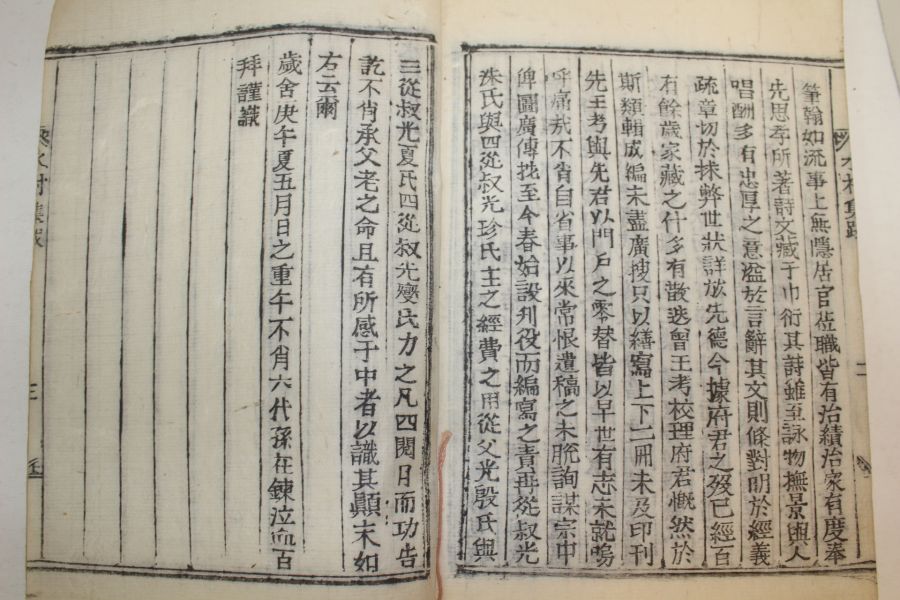 筆翰如流事上無隱居官莅職皆有治績治家有度奉
先思孝所著詩文藏于巾衍其詩雖至詠物撫景與人
唱酬多有忠厚之意溢於言辭其文則條對明於經義
疏章切於捄弊世狀詳於先德今據府君之歿已經百
有餘歲家藏之什多有散迭曾王考校理府君慨然於
斯類輯成編未盡廣搜只以繕寫上下二冊未及印刊
先王考與先君以門戶之零替皆以早世有志未就嗚
呼痛哉不肖自省事以來常恨遺稿之未脫詢謀宗中
俾圖廣傳挩至今春始設刋役而編寫之青再從叔光
洙氏與四從叔光珍氏主之經費之用從父光殷氏與
三從叔光夏氏四從叔光燮氏力之凡四閱月而功告
訖不肖承父老之命且有所感于中者以識其顚末如
右云爾
歲舍庚午夏五月日之重午不肖六代孫在鍊泣血百
拜謹識
水村集跋
二
水村集跋
三